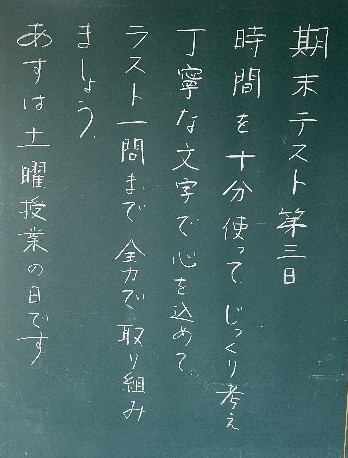 期末テスト第三日
時間を十分使って じっくり考え
丁寧な文字で心を込めて
ラスト一問まで 全力で取り組み
ましょう。
あすは土曜授業の日です